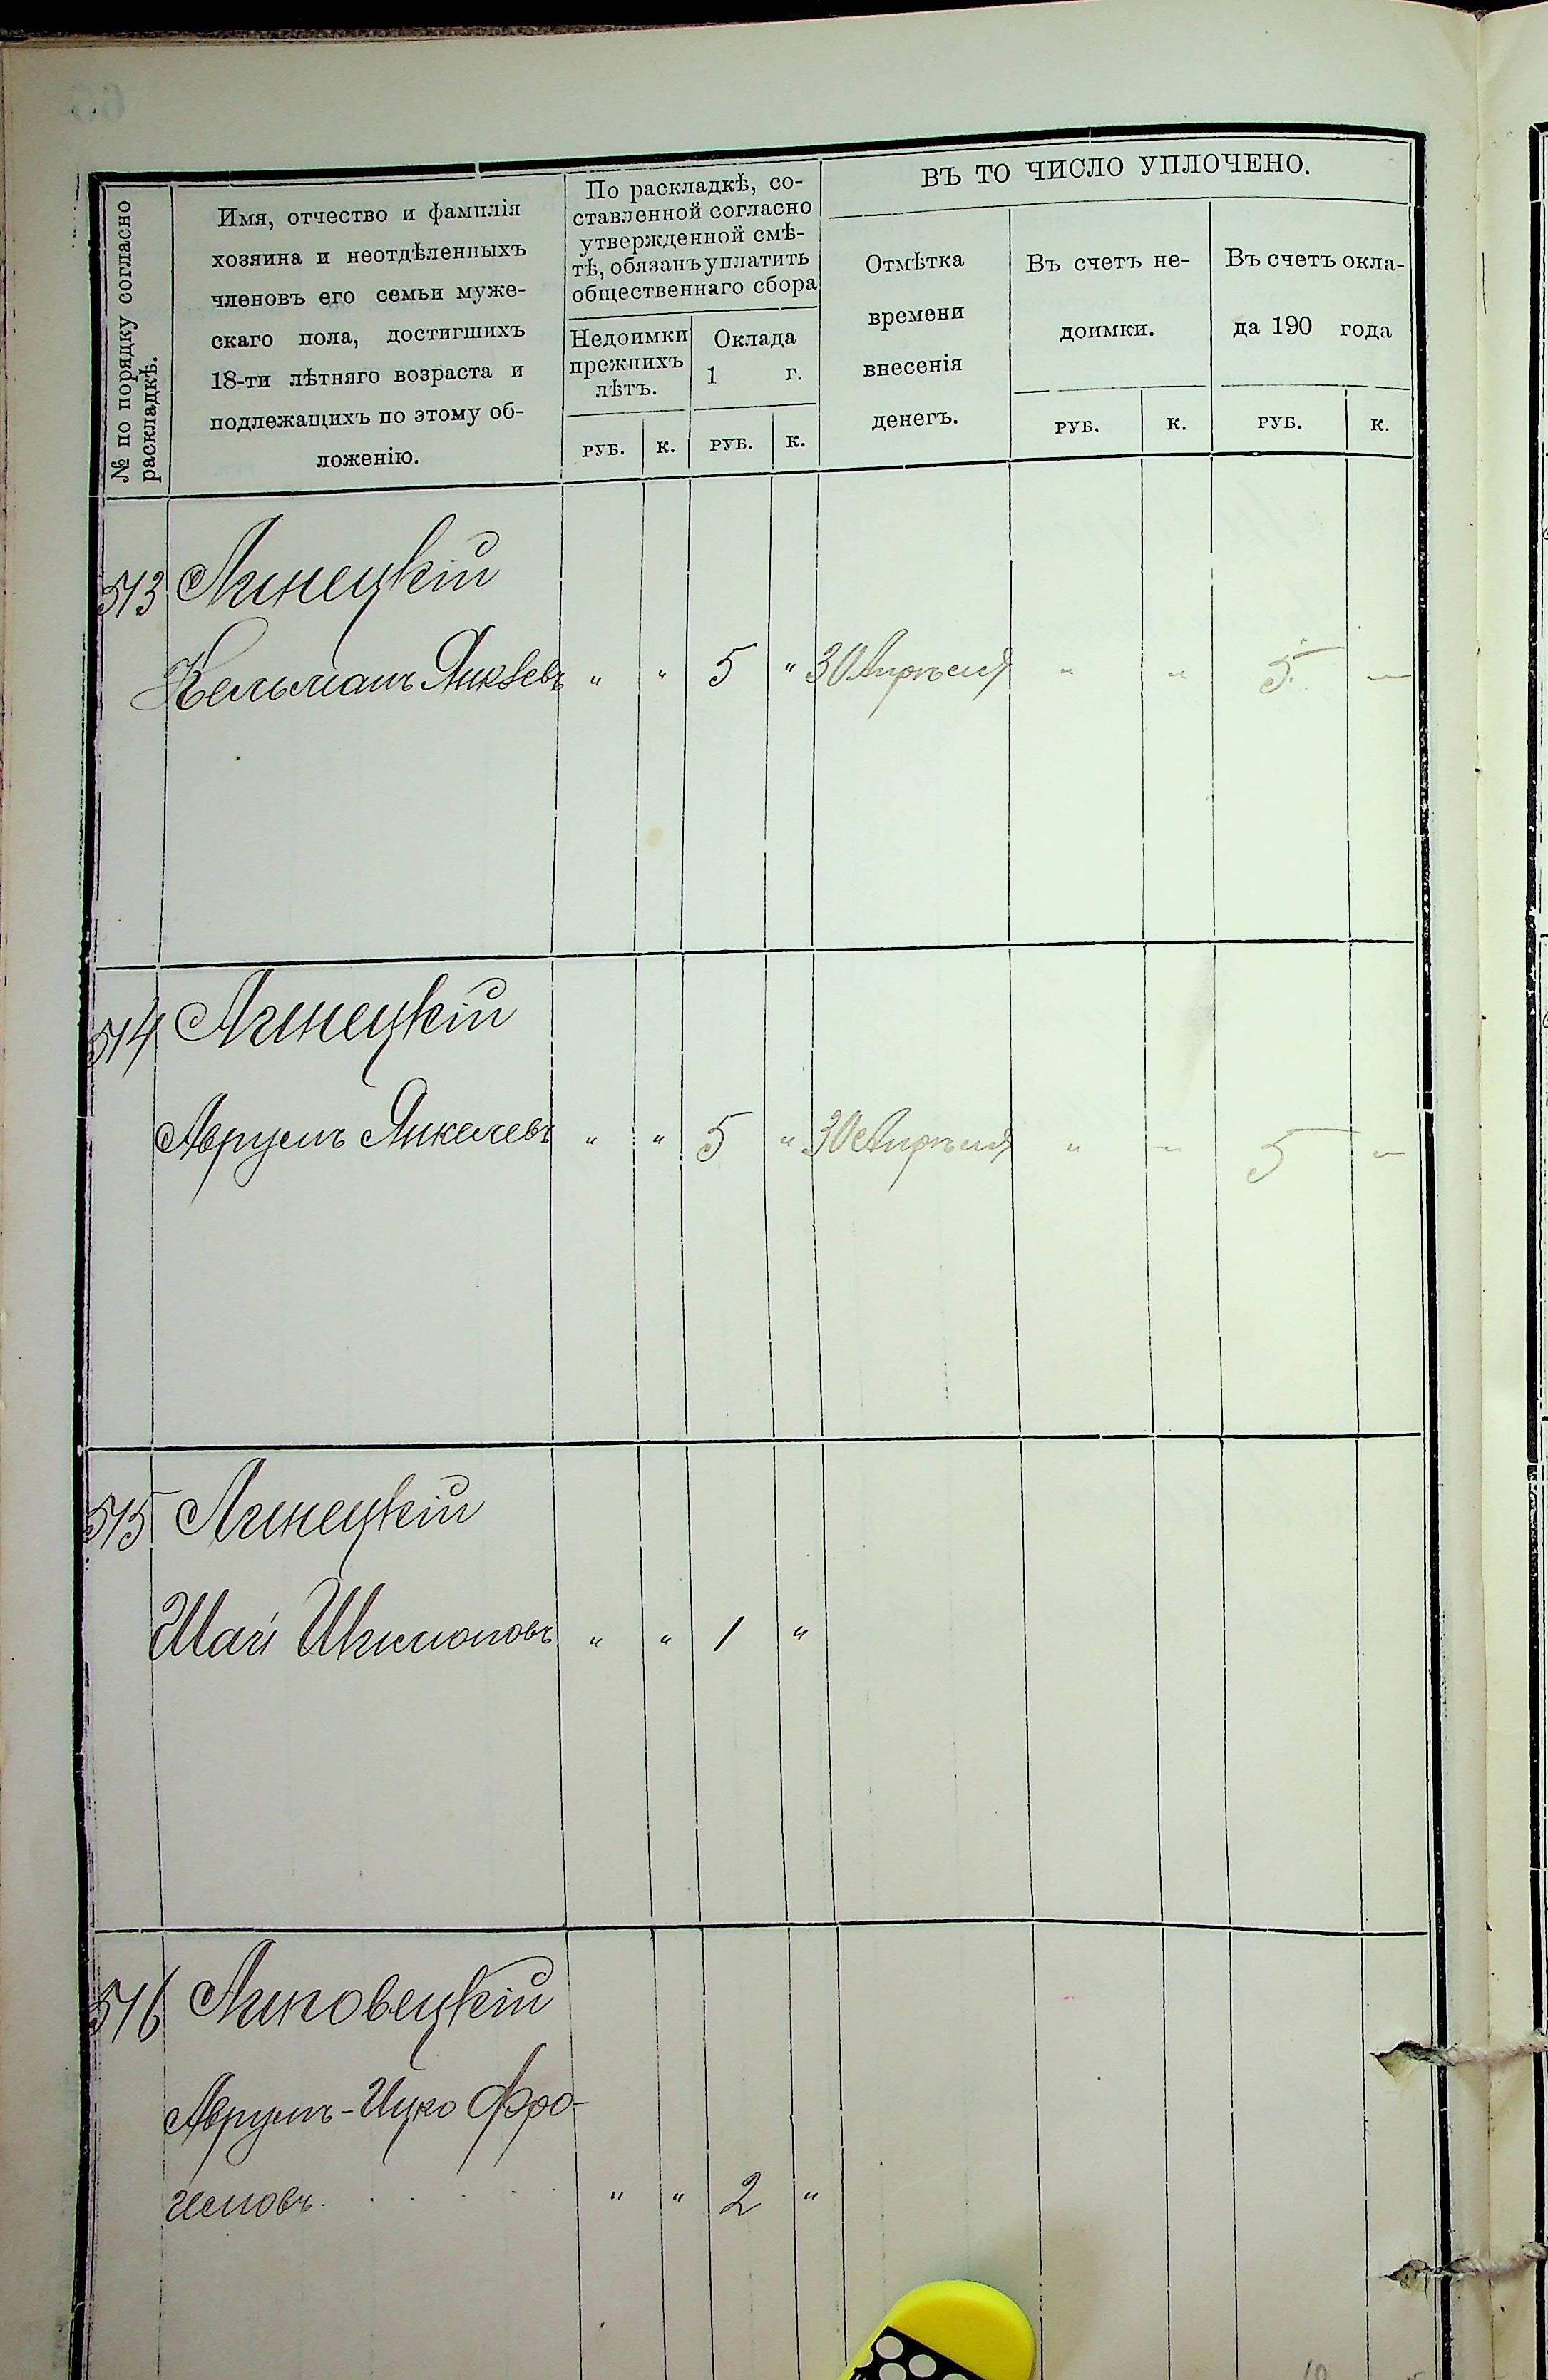 № по порядку согласно
раскладкѣ.
Имя, отчество и фамилія
хозяина и неотдѣленныхъ
членовъ его семьи муже-
скаго пола, достигшихъ
18-ти лѣтняго возраста и
подлежащихъ по этому об-
ложенію.
По раскладкѣ, со-
ставленной согласно
утвержденной смѣ-
тѣ, обязанъ уплатить
общественнаго сбора
Недоимки
прежнихъ
лѣтъ.
Оклада
1 г.
РУБ. К. РУБ. К.
ВЪ ТО ЧИСЛО УПЛОЧЕНО.
Отмѣтка
времени
внесенія
денегъ.
Въ счетъ не-
доимки.
Въ счетъ окла-
да 190 года
РУБ. К. РУБ. К.
513 Линецкій
Кельманъ Янкевъ " " 5 " 30 Апрѣля " " 5 —
514 Линецкій
Аврумъ Янкелевъ " " 5 " 30 Апрѣля " " 5 —
515 Линецкій
" " 1 "
516 Липовецкій
Аврумъ-Ицко Фро-
имовъ. " " 2 "